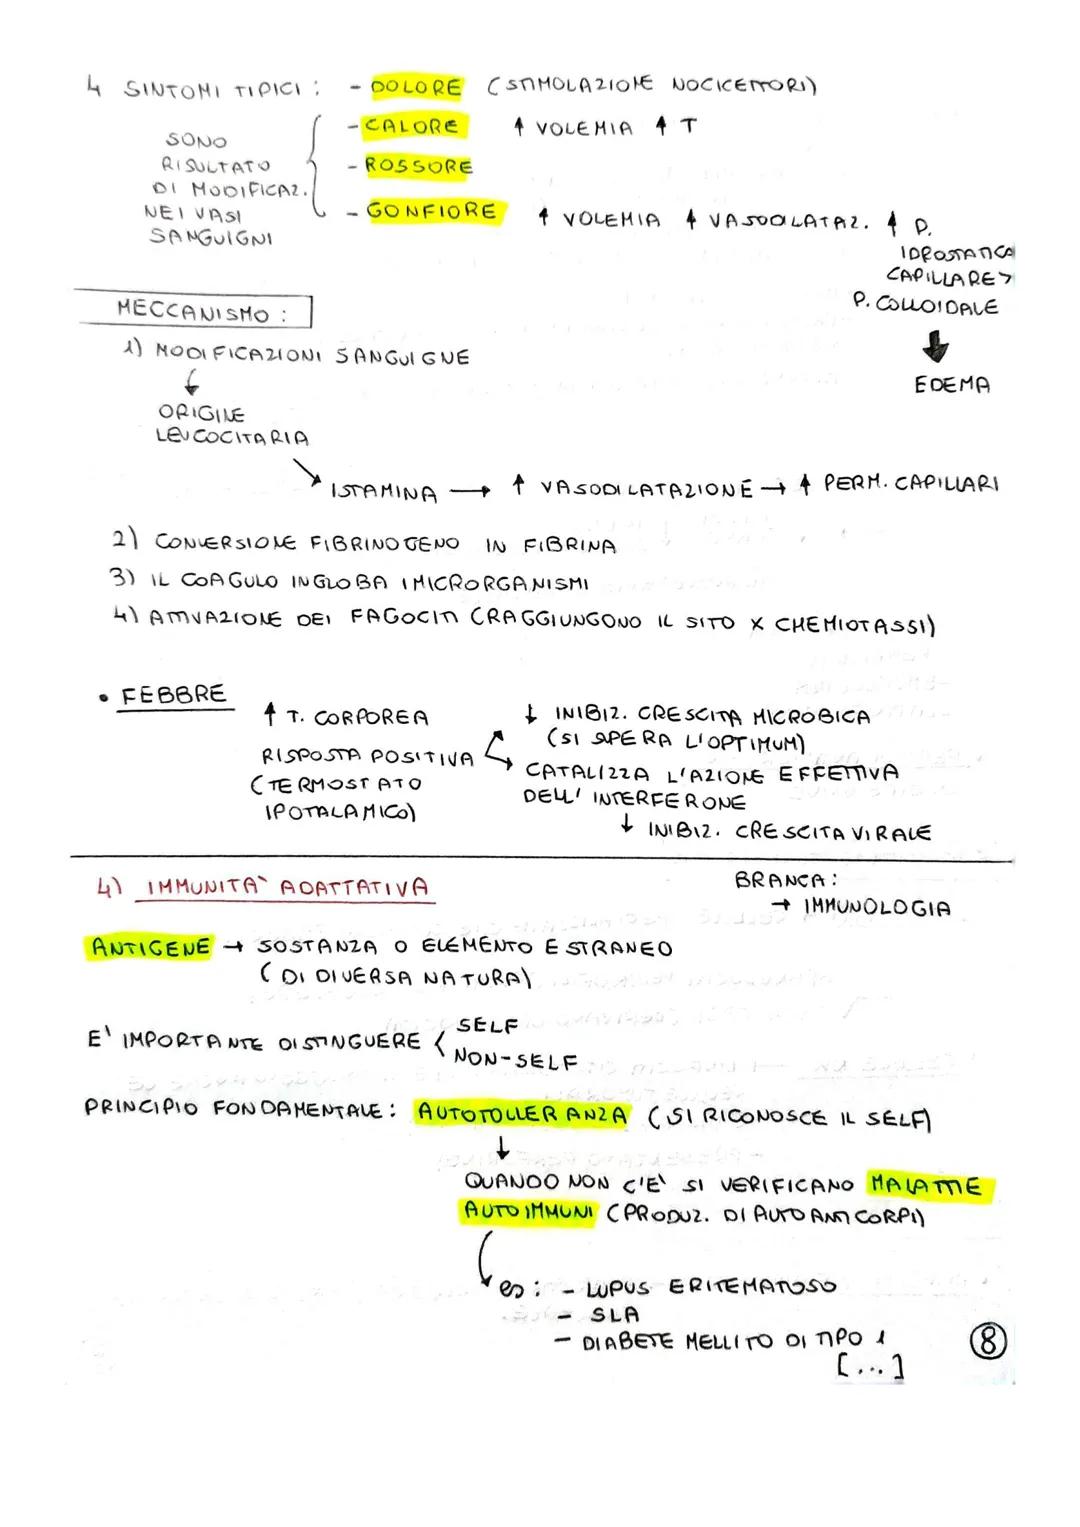 4 SINTOMI TIPICI : - DOLORE (STIMOLAZIONE NOCICETTORI)
- CALORE ↑ VOLEMIA ↑ T
- ROSSORE
- GONFIORE ↑ VOLEMIA ↑ VASODILATAZ. ↑ P. IDROSTATICA CAPILLARE > P. COLLOIDALE
↓
EDEMA
SONO
RISULTATO
DI MODIFICAZ.
NEI VASI
SANGUIGNI
MECCANISMO :
1) MODIFICAZIONI SANGUIGNE
↓
ORIGINE
LEUCOCITARIA
↘ ISTAMINA → ↑ VASODILATAZIONE → ↑ PERM. CAPILLARI
2) CONVERSIONE FIBRINOGENO IN FIBRINA
3) IL COAGULO INGLOBA I MICRORGANISMI
4) ATTIVAZIONE DEI FAGOCITI (RAGGIUNGONO IL SITO X CHEMIOTASSI)
• FEBBRE
↑ T. CORPOREA
RISPOSTA POSITIVA
(TERMOSTATO
IPOTALAMICO)
↓ INIBIZ. CRESCITA MICROBICA
(SI SPERA L'OPTIMUM)
CATALIZZA L'AZIONE EFFETTIVA
DELL' INTERFERONE
↓ INIBIZ. CRESCITA VIRALE
4) IMMUNITA` ADATTATIVA
BRANCA :
→ IMMUNOLOGIA
ANTIGENE → SOSTANZA O ELEMENTO ESTRANEO
(DI DIVERSA NATURA)
E' IMPORTANTE DISTINGUERE < SELF
NON-SELF
PRINCIPIO FONDAMENTALE : AUTOTOLLERANZA (SI RICONOSCE IL SELF)
↓
QUANDO NON C'E` SI VERIFICANO MALATTIE
AUTOIMMUNI (PRODUZ. DI AUTOANTICORPI)
es : - LUPUS ERITEMATOSO
- SLA
- DIABETE MELLITO DI TIPO 1
[...]
8